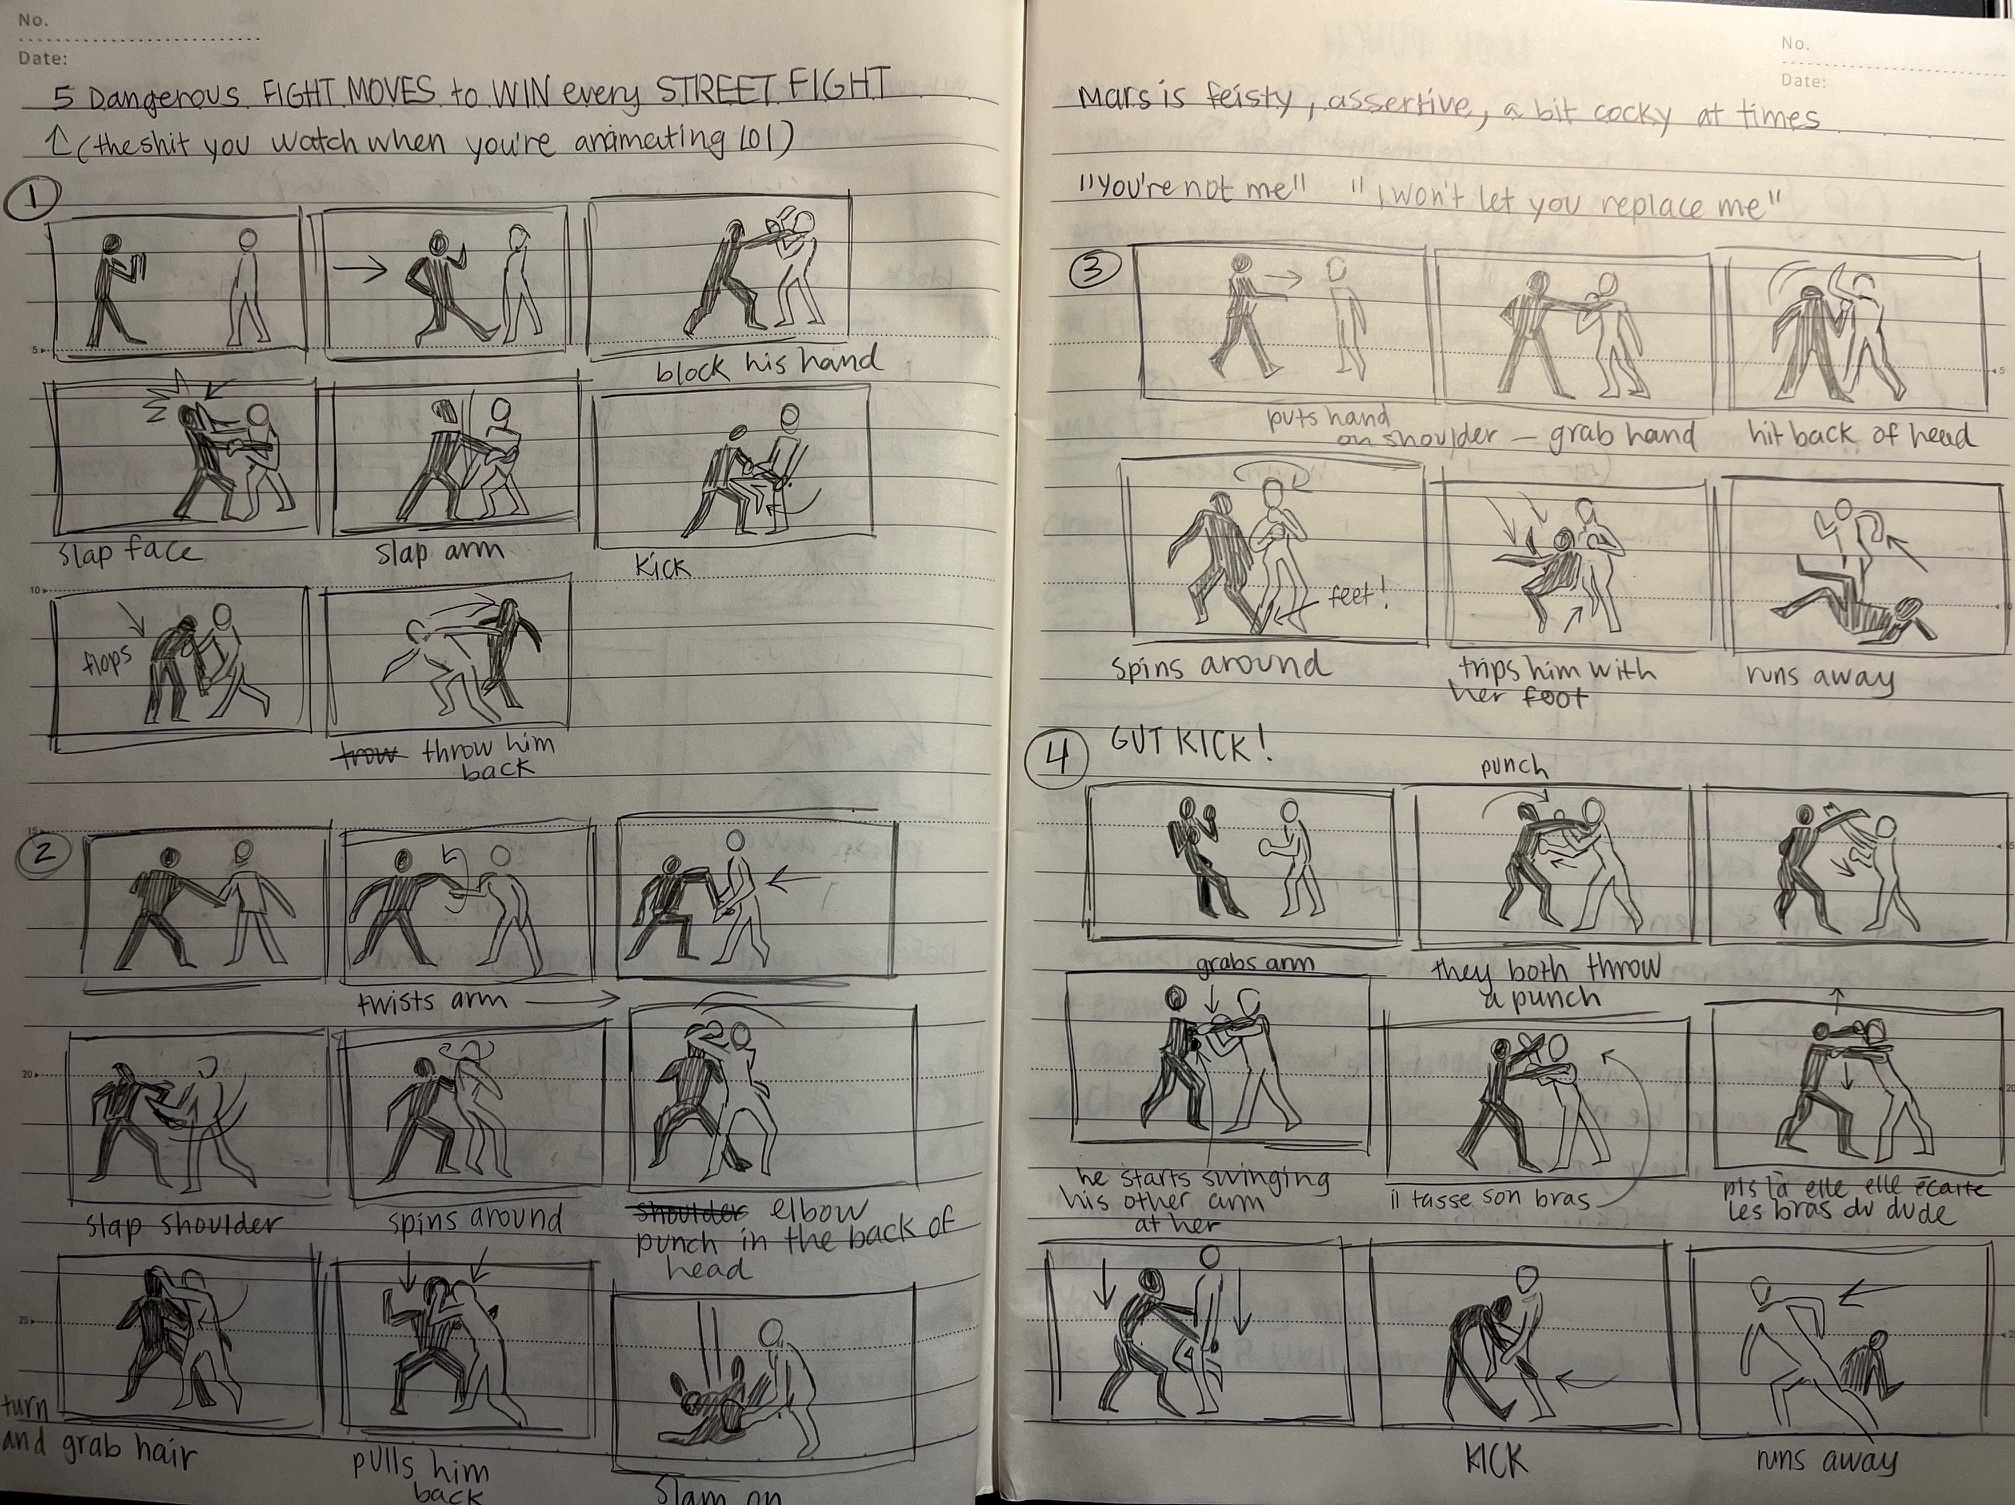 No.
Date:
5 Dangerous FIGHT MOVES to WIN every STREET FIGHT
(the shit you watch when you're animating lol)
1
5
block his hand
slap face
slap arm
kick
10
flops
trow throw him
back
15
2
twists arm
20
slap shoulder
spins around
shoulder elbow
punch in the back of
head
25
turn
and grab hair
pulls him
back
slam on
No.
Date:
Mars is feisty, assertive, a bit cocky at times
"You're not me" "I won't let you replace me"
3
5
puts hand
on shoulder — grab hand
hit back of head
feet!
spins around
trips him with
her foot
runs away
4 GUT KICK!
punch
grabs arm
they both throw
a punch
20
he starts swinging
his other arm
at her
il tasse son bras
pis là elle elle écarte
les bras du dude
KICK
runs away